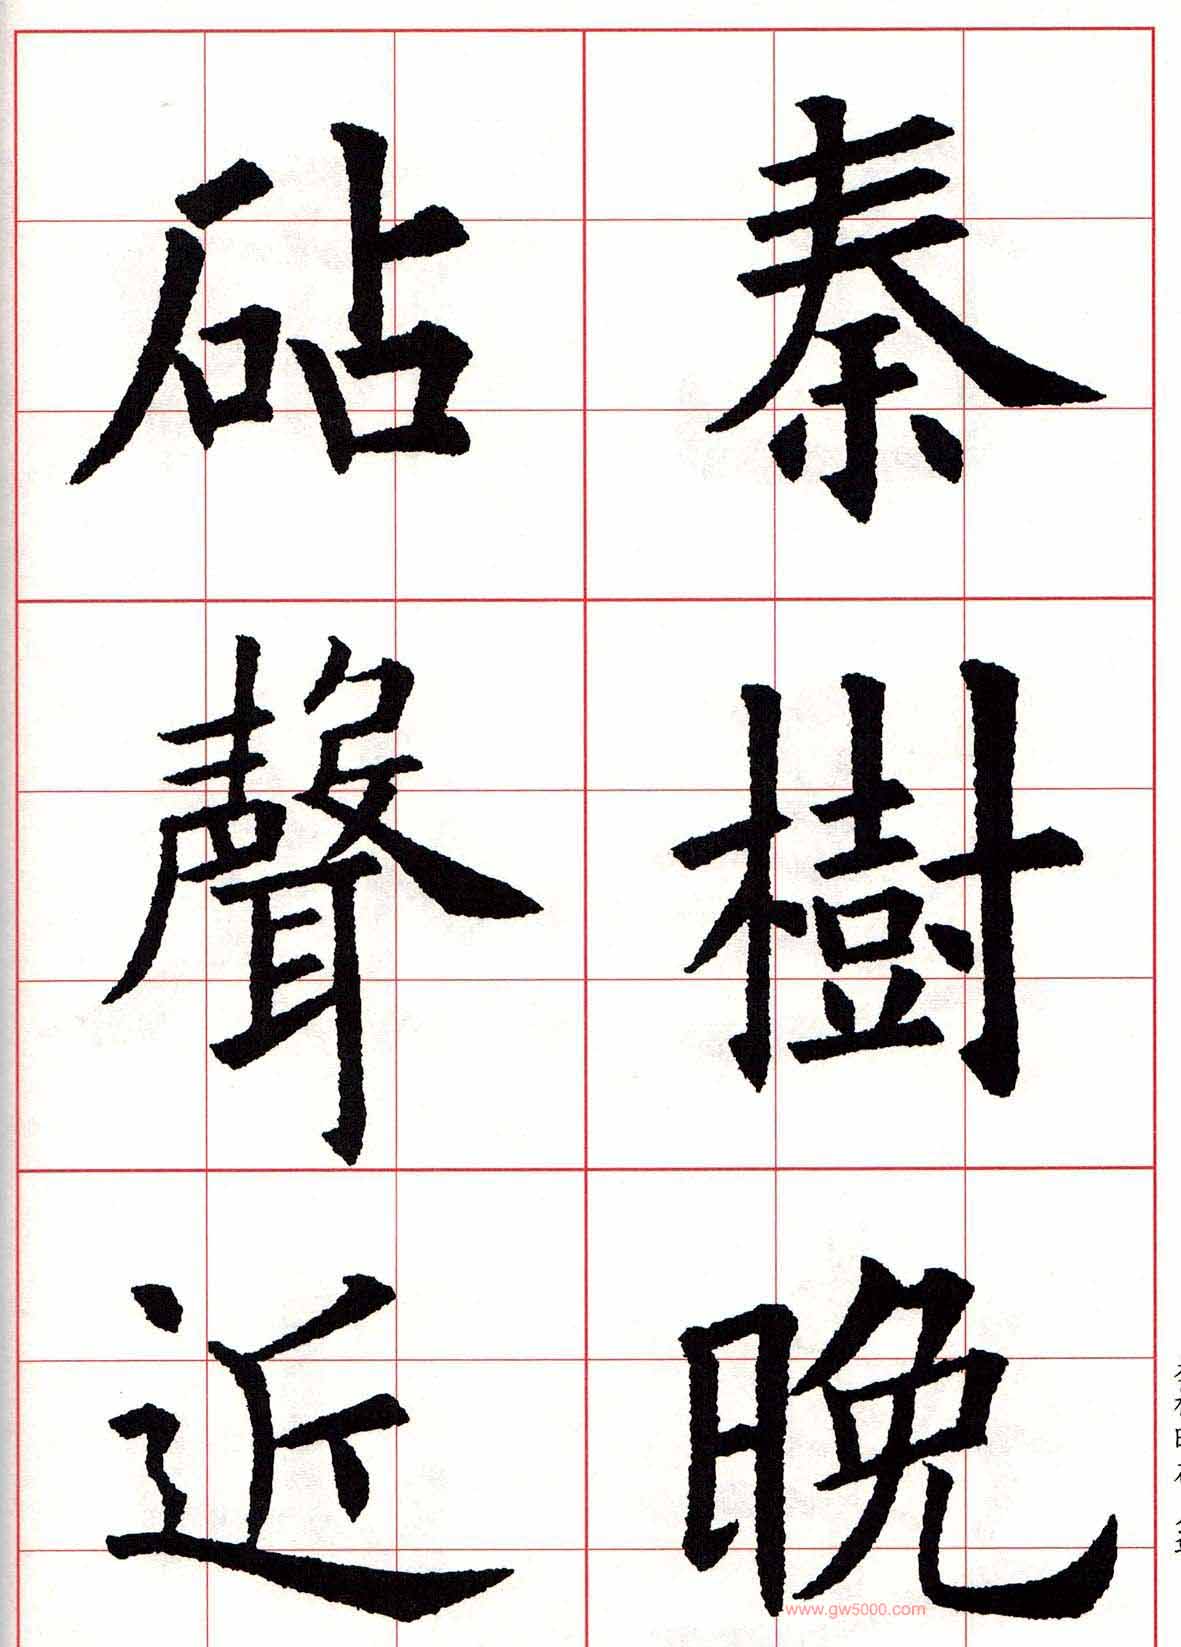 秦樹晚
砧聲近
www.gw5000.com